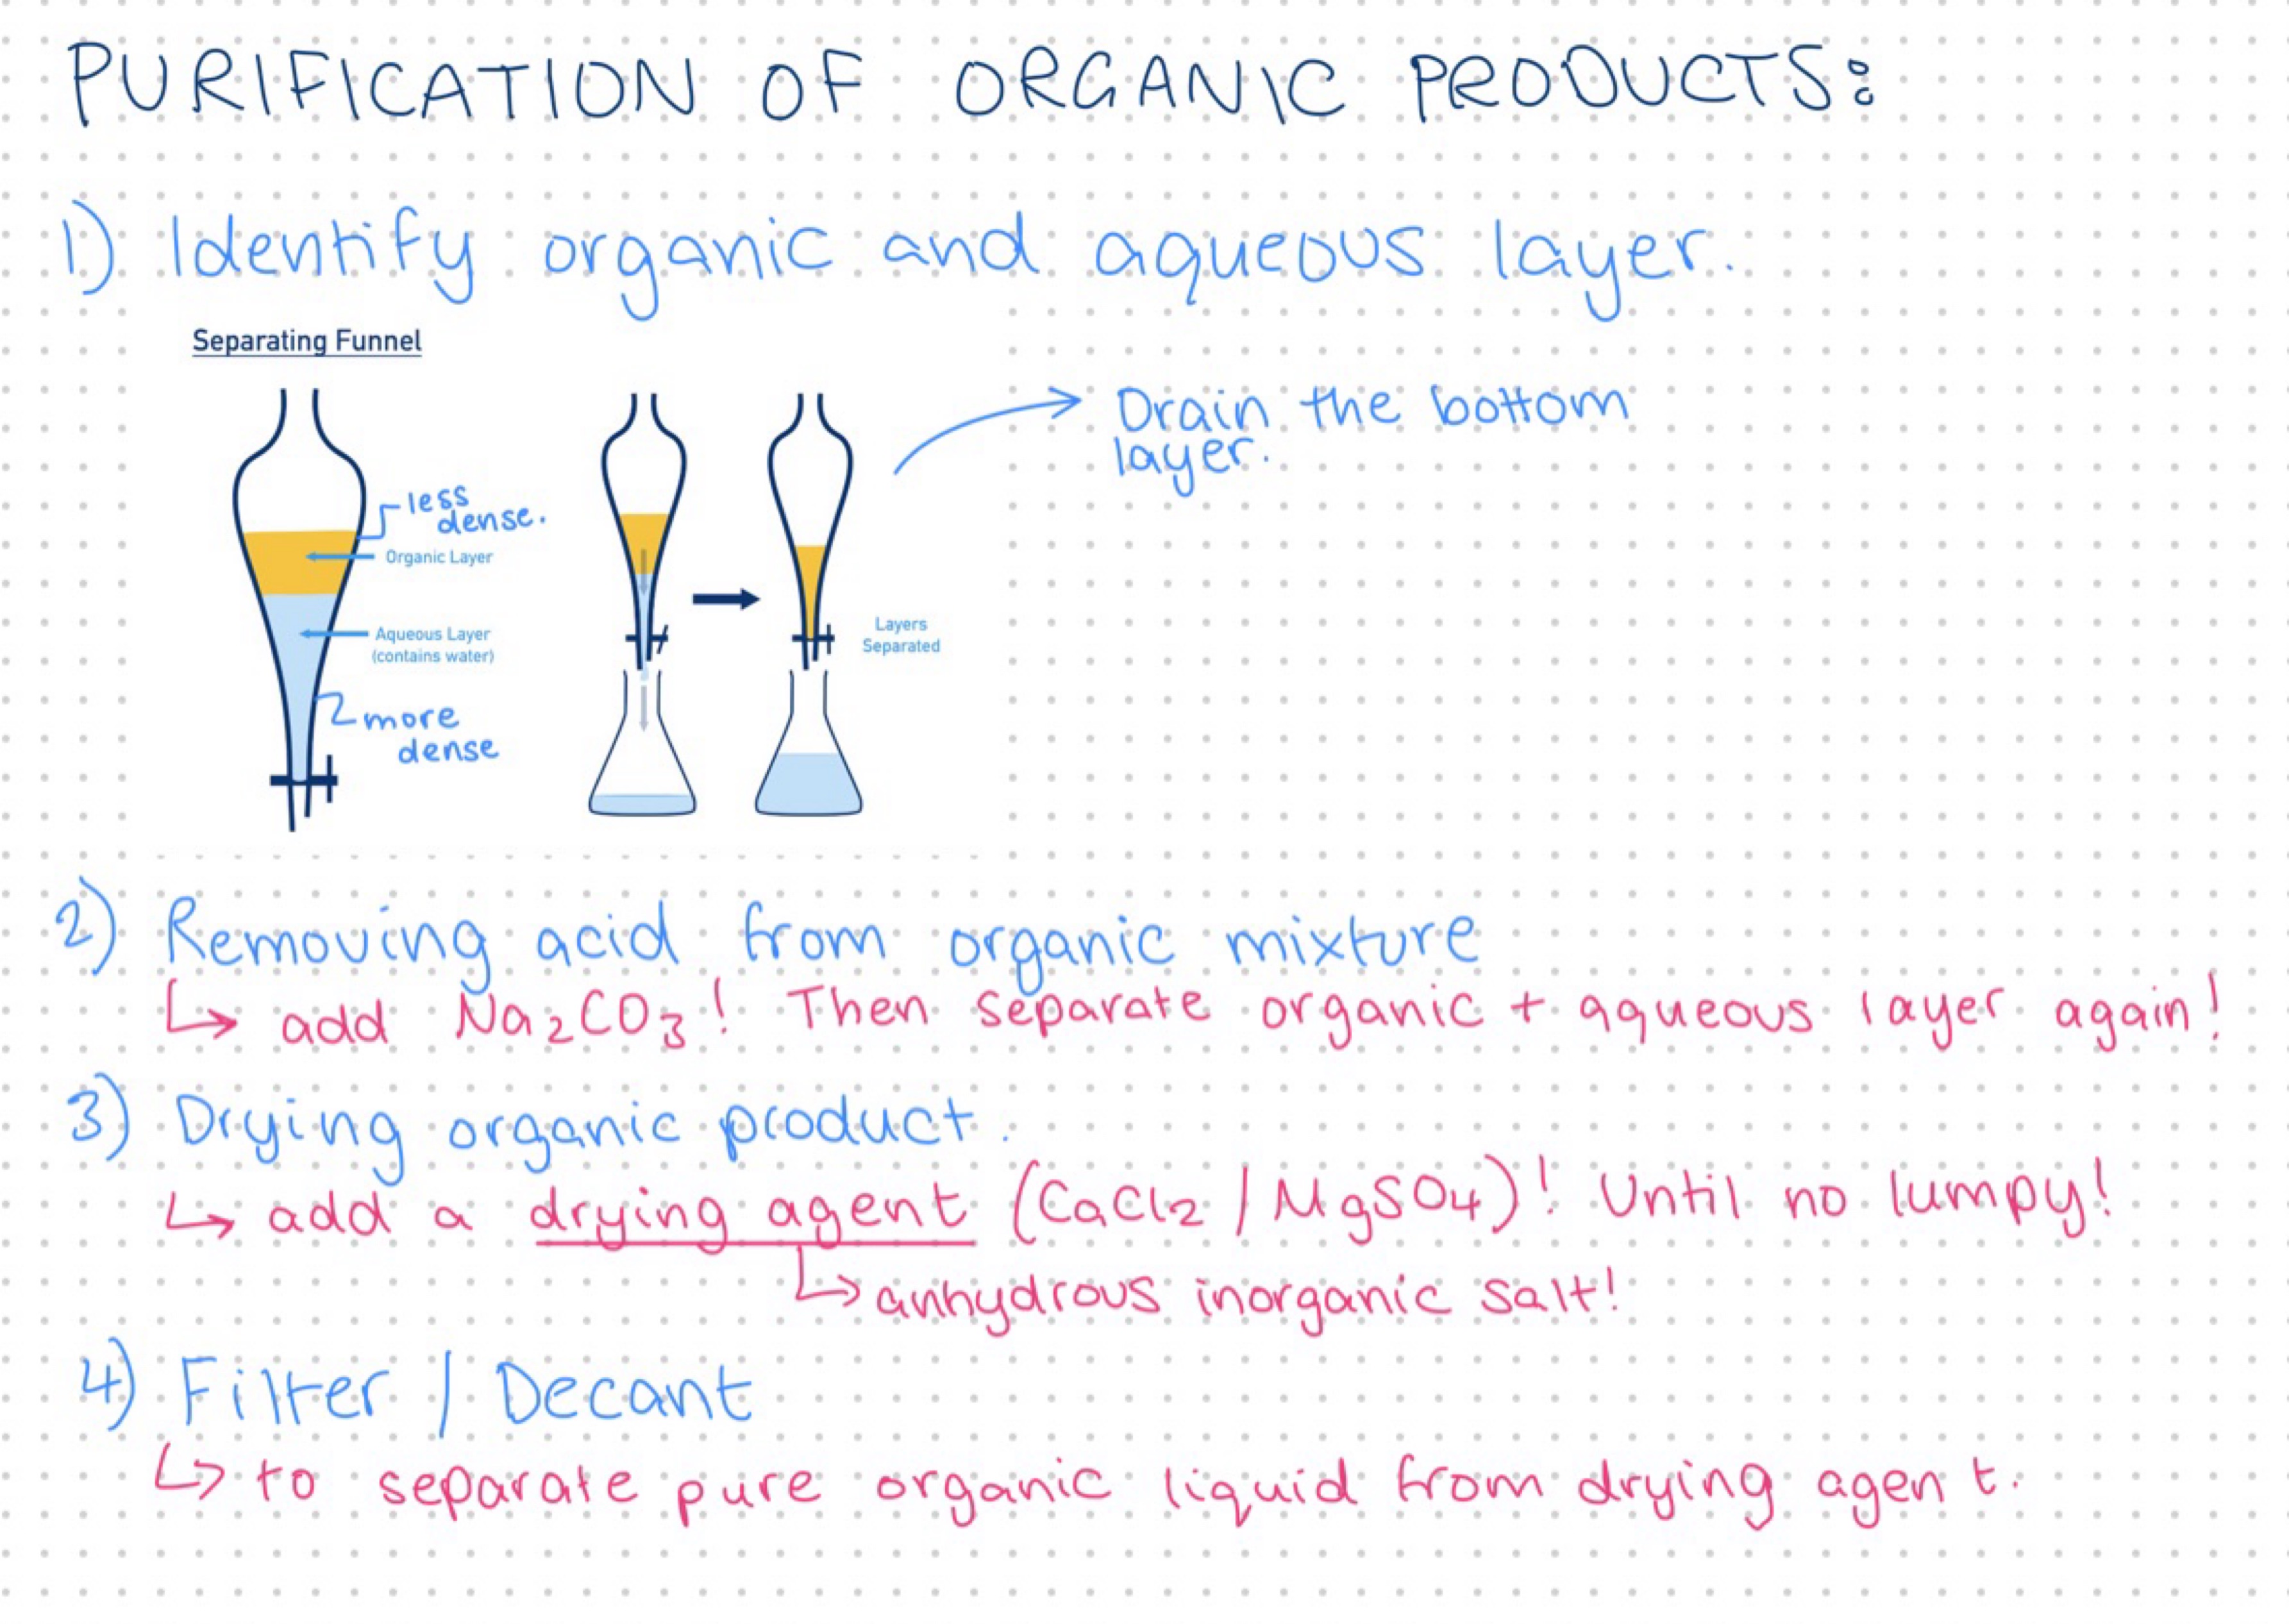 PURIFICATION OF ORGANIC PRODUCTS:
1) Identify organic and aqueous layer.
Separating Funnel
Drain the bottom
layer.
less
dense.
Organic Layer
Aqueous Layer
(contains water)
more
dense
Layers
Separated
2) Removing acid from organic mixture
↳ add Na₂CO₃! Then separate organic + aqueous layer again!
3) Drying organic product.
↳ add a drying agent (CaCl₂ / MgSO₄)! Until no lumpy!
↳ anhydrous inorganic salt!
4) Filter / Decant
↳ to separate pure organic liquid from drying agent.